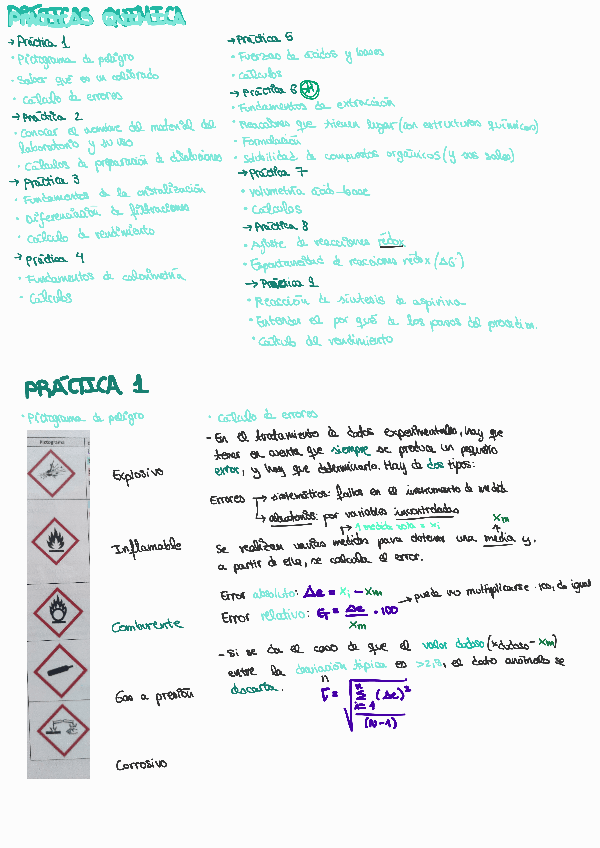 PRÁCTICAS QUÍMICA
→ Práctica 1
· Pictograma de peligro
· Saber qué es un calibrado
· Cálculo de errores
→ Práctica 2
· Conocer el nombre del material del
laboratorio y su uso
· Cálculos de preparación de disoluciones
→ Práctica 3
· Fundamentos de la cristalización
· Diferenciación de filtraciones
· Cálculo de rendimiento
→ Práctica 4
· Fundamentos de calorimetría
· Cálculos
→ Práctica 5
· Fuerzas de ácidos y bases
· Cálculos
→ Práctica 6
· Fundamentos de extracción
· Reacciones que tienen lugar (con estructuras químicas)
· Formulación
· Solubilidad de compuestos orgánicos (y sus sales)
→ Práctica 7
· Volumetría ácido-base
· Cálculos
→ Práctica 8
· Ajuste de reacciones redox
· Espontaneidad de reacciones redox (ΔG)
→ Práctica 9
· Reacción de síntesis de aspirina
· Entender el por qué de los pasos del procedim.
· Cálculo del rendimiento
PRÁCTICA 1
· Pictograma de peligro
Pictograma
Explosivo
Inflamable
Comburente
Gas a presión
Corrosivo
· Cálculo de errores
- En el tratamiento de datos experimentales, hay que
tener en cuenta que siempre se produce un pequeño
error, y hay que determinarlo. Hay de dos tipos:
Errores → sistemáticos: fallos en el instrumento de medida
↳ aleatorios: por variables incontroladas
↱ 1 medida sola = xi
xm
Se realizan varias medidas para obtener una media y,
a partir de ella, se calcula el error.
Error absoluto: Δe = xi - xm
Error relativo: Er = Δe / xm · 100 → puede no multiplicarse · 100, da igual
- Si se da el caso de que el valor dudoso (xdudoso - xm)
entre la desviación típica es >2,5, el dato anómalo se
descarta.
σ = √ Σ n i=1 (Δe)² / (N-1)